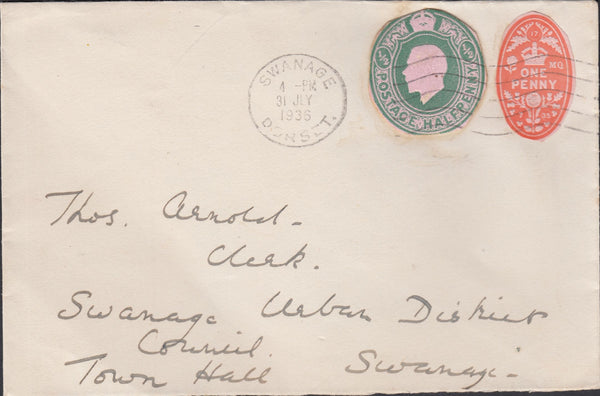 SWANAGE
4 -PM
31 JLY
1936
DORSET.
½D ½D
POSTAGE HALFPENNY
17
MQ
ONE
PENNY
35
Thos. Arnold-
Clerk.
Swanage Urban District
Council.
Town Hall Swanage-